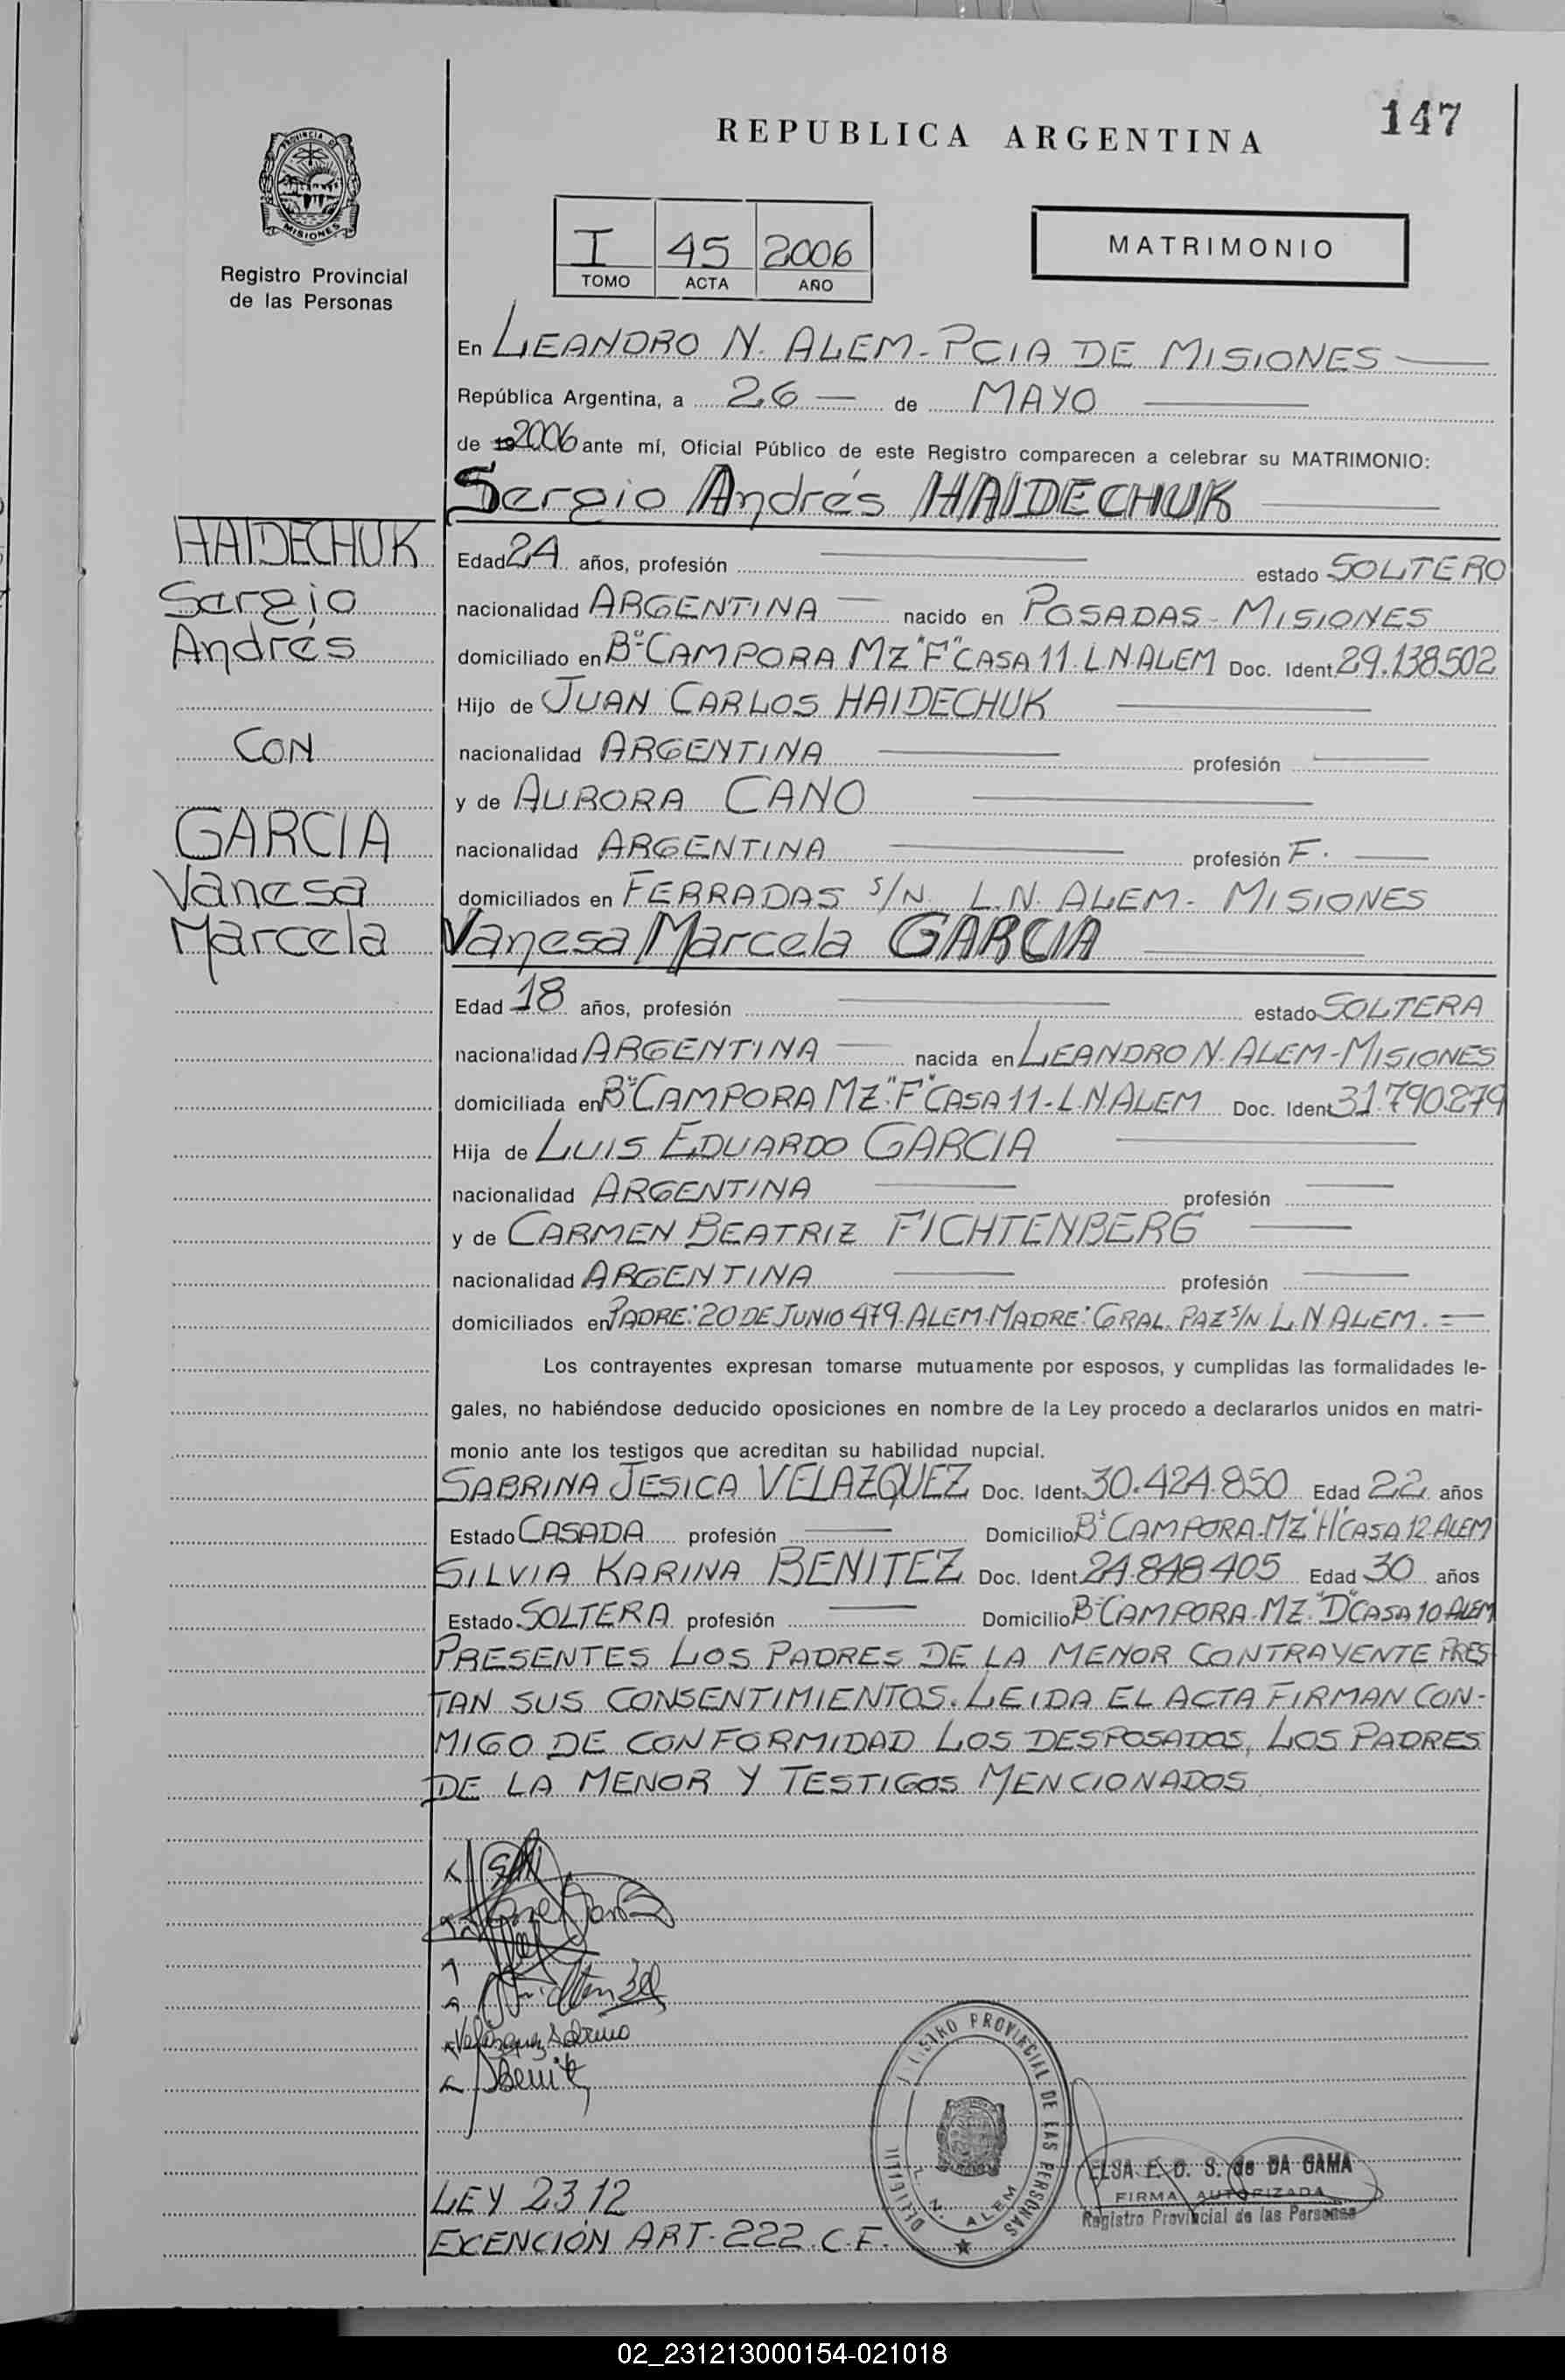 147
REPUBLICA ARGENTINA
PROVINCIA DE
MISIONES
Registro Provincial
de las Personas
I 45 2006
TOMO ACTA AÑO
MATRIMONIO
En LEANDRO N. ALEM - PCIA DE MISIONES
República Argentina, a 26 de MAYO
de 19 2006 ante mí, Oficial Público de este Registro comparecen a celebrar su MATRIMONIO:
Sergio Andrés HAIDECHUK
HAIDECHUK
Sergio
Andrés
CON
GARCIA
Vanesa
Marcela
Edad 24 años, profesión estado SOLTERO
nacionalidad ARGENTINA nacido en POSADAS - MISIONES
domiciliado en Bº CAMPORA MZ "F" CASA 11. L.N.ALEM Doc. Ident. 29.138.502
Hijo de JUAN CARLOS HAIDECHUK
nacionalidad ARGENTINA profesión
y de AURORA CANO
nacionalidad ARGENTINA profesión F.
domiciliados en FERRADAS S/N L.N. ALEM - MISIONES
Vanesa Marcela GARCIA
Edad 18 años, profesión estado SOLTERA
nacionalidad ARGENTINA nacida en LEANDRO N. ALEM - MISIONES
domiciliada en Bº CAMPORA MZ "F" CASA 11 - L.N ALEM Doc. Ident. 31.790.279
Hija de LUIS EDUARDO GARCIA
nacionalidad ARGENTINA profesión
y de CARMEN BEATRIZ FICHTENBERG
nacionalidad ARGENTINA profesión
domiciliados en PADRE: 20 DE JUNIO 479. ALEM. MADRE: GRAL. PAZ S/N L.N ALEM. =
Los contrayentes expresan tomarse mutuamente por esposos, y cumplidas las formalidades le-
gales, no habiéndose deducido oposiciones en nombre de la Ley procedo a declararlos unidos en matri-
monio ante los testigos que acreditan su habilidad nupcial.
SABRINA JESICA VELAZQUEZ Doc. Ident. 30.424.850 Edad 22 años
Estado CASADA profesión Domicilio Bº CAMPORA - MZ "H" CASA 12 - ALEM
SILVIA KARINA BENITEZ Doc. Ident. 24.848.405 Edad 30 años
Estado SOLTERA profesión Domicilio Bº CAMPORA - MZ. "D" CASA 10 - ALEM
PRESENTES LOS PADRES DE LA MENOR CONTRAYENTE PRES
TAN SUS CONSENTIMIENTOS. LEIDA EL ACTA FIRMAN CON-
MIGO DE CONFORMIDAD LOS DESPOSADOS, LOS PADRES
DE LA MENOR Y TESTIGOS MENCIONADOS
Velazquez Sabrina
Benit
REGISTRO PROVINCIAL DE LAS PERSONAS
L. N. ALEM
ELSA F. D. S. de DA GAMA
FIRMA AUTORIZADA
Registro Provincial de las Personas
LEY 2312
EXENCIÓN ART - 222. C.F.
02_231213000154-021018